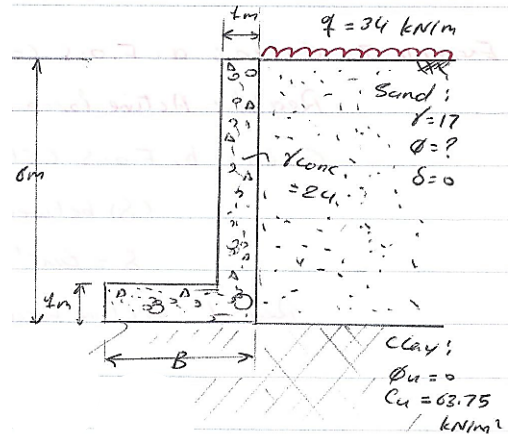 1m
q = 34 kN/m
Sand :
γ = 17
φ = ?
δ = 0
γconc
= 24
6m
1m
B
Clay :
φu = 0
Cu = 63.75
kN/m²